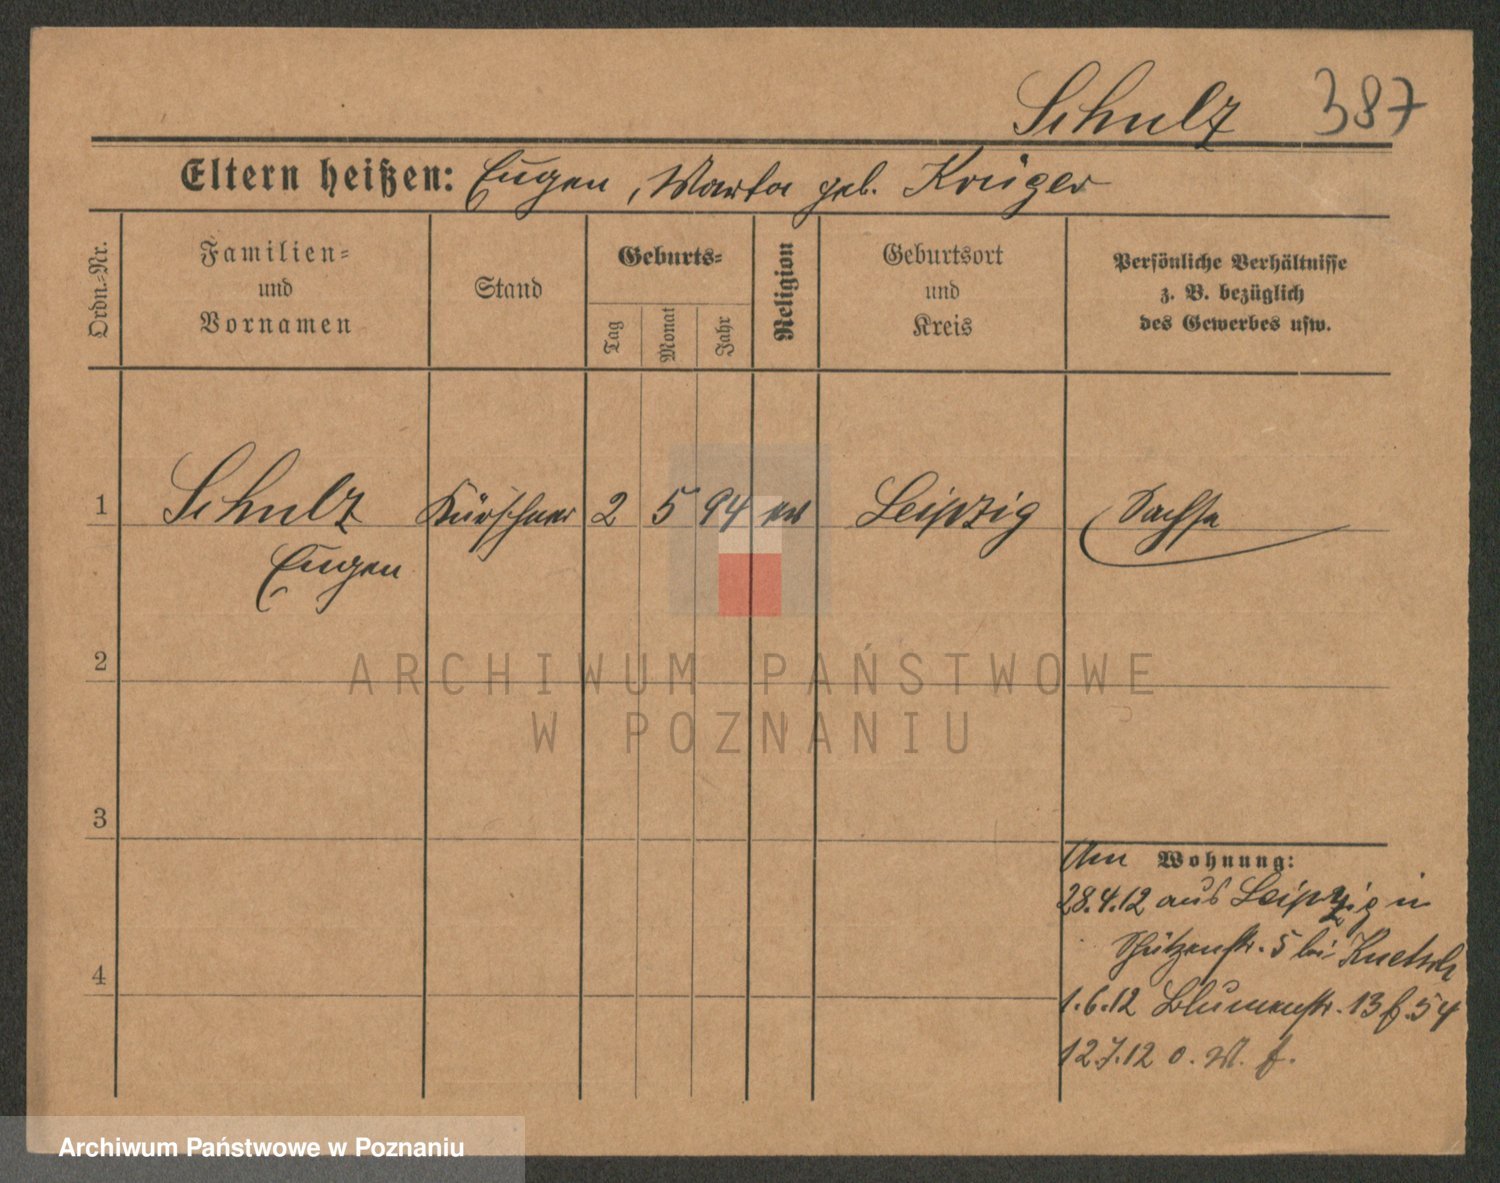 Schulz 387
Eltern heißen: Eugen, Marta geb. Krüger
Ordn.-Nr.
Familien-
und
Vornamen
Stand
Geburts-
Tag
Monat
Jahr
Religion
Geburtsort
und
Kreis
Persönliche Verhältnisse
z. B. bezüglich
des Gewerbes usw.
1 Schulz Kürschner 2 5 94 ev Leipzig Sachse
Eugen
2
ARCHIWUM PAŃSTWOWE
W POZNANIU
3
Wohnung:
28.4.12 aus Leipzig in
Schützenstr. 5 bei
4
1.6.12 Blumenstr. 13 54
12.7.12 o.
Archiwum Państwowe w Poznaniu